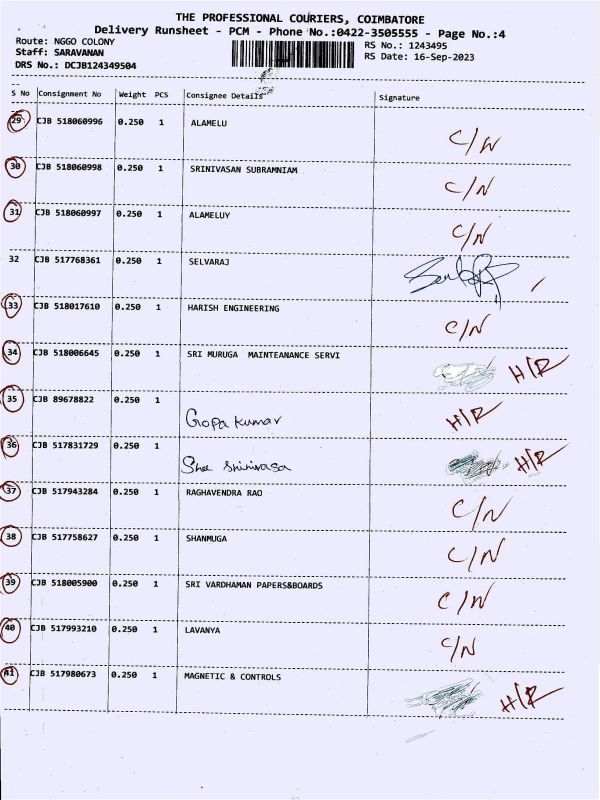 THE PROFESSIONAL COURIERS, COIMBATORE
Delivery Runsheet - PCM - Phone No.:0422-3505555 - Page No.:4
Route: NGGO COLONY RS No.: 1243495
Staff: SARAVANAN RS Date: 16-Sep-2023
DRS No.: DCJB124349504
S No Consignment No Weight PCS Consignee Details Signature
29 CJB 518060996 0.250 1 ALAMELU C/N
30 CJB 518060998 0.250 1 SRINIVASAN SUBRAMNIAM C/N
31 CJB 518060997 0.250 1 ALAMELUY C/N
32 CJB 517768361 0.250 1 SELVARAJ
33 CJB 518017610 0.250 1 HARISH ENGINEERING C/N
34 CJB 518006645 0.250 1 SRI MURUGA MAINTEANANCE SERVI H/R
35 CJB 89678822 0.250 1 Gopa kumar H/R
36 CJB 517831729 0.250 1 Shee shinivasa H/R
37 CJB 517943284 0.250 1 RAGHAVENDRA RAO C/N
38 CJB 517758627 0.250 1 SHANMUGA C/N
39 CJB 518005900 0.250 1 SRI VARDHAMAN PAPERS&BOARDS C/N
40 CJB 517993210 0.250 1 LAVANYA C/N
41 CJB 517980673 0.250 1 MAGNETIC & CONTROLS H/R